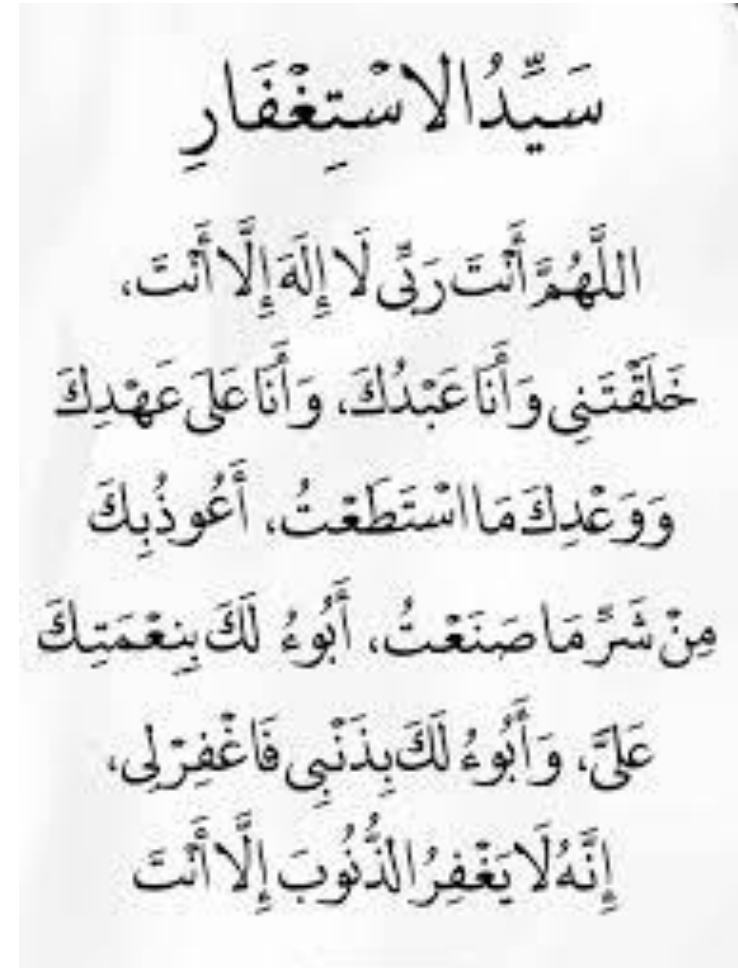 سَيِّدُ الاسْتِغْفَارِ
اللَّهُمَّ أَنْتَ رَبِّي لَا إِلَهَ إِلَّا أَنْتَ،
خَلَقْتَنِي وَأَنَا عَبْدُكَ، وَأَنَا عَلَى عَهْدِكَ
وَوَعْدِكَ مَا اسْتَطَعْتُ، أَعُوذُ بِكَ
مِنْ شَرِّ مَا صَنَعْتُ، أَبُوءُ لَكَ بِنِعْمَتِكَ
عَلَيَّ، وَأَبُوءُ لَكَ بِذَنْبِي فَاغْفِرْ لِي،
إِنَّهُ لَا يَغْفِرُ الذُّنُوبَ إِلَّا أَنْتَ